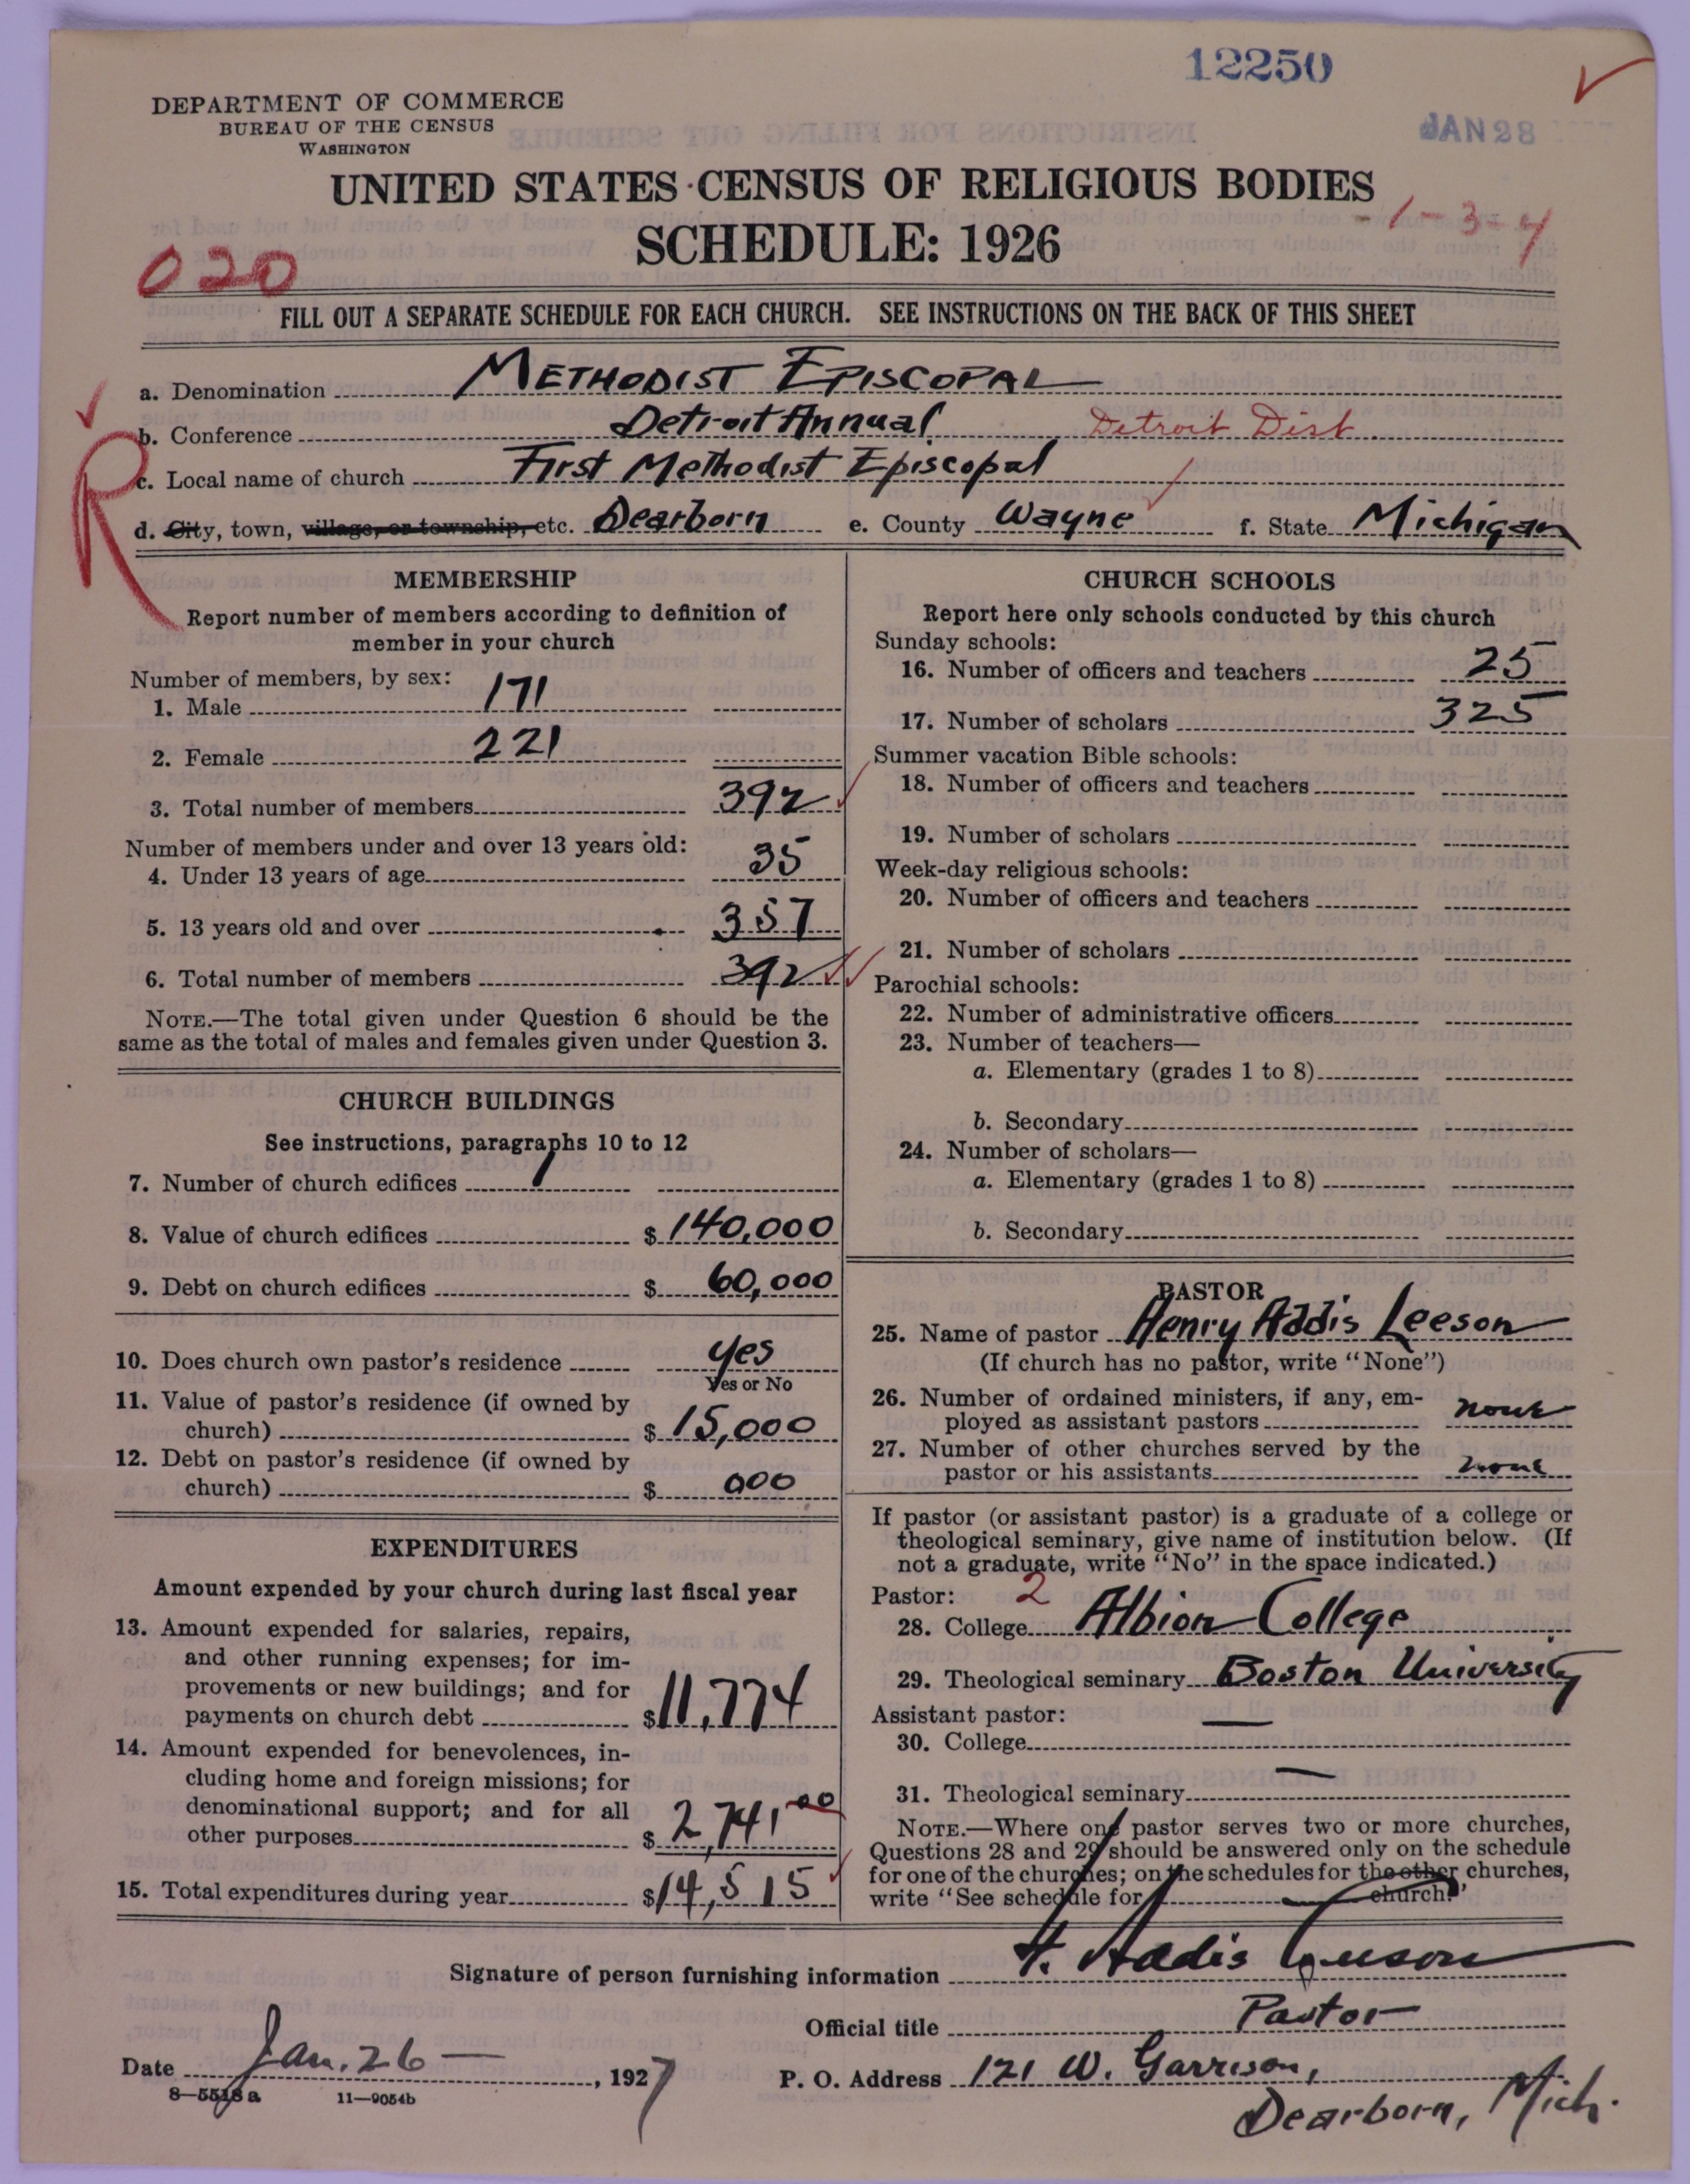 12250
DEPARTMENT OF COMMERCE
BUREAU OF THE CENSUS
WASHINGTON
JAN 28
UNITED STATES CENSUS OF RELIGIOUS BODIES
SCHEDULE: 1926
1-3-4
020
FILL OUT A SEPARATE SCHEDULE FOR EACH CHURCH. SEE INSTRUCTIONS ON THE BACK OF THIS SHEET
a. Denomination METHODIST EPISCOPAL
b. Conference Detroit Annual Detroit Dist.
c. Local name of church First Methodist Episcopal
R
d. City, town, village, or township, etc. Dearborn e. County Wayne f. State Michigan
MEMBERSHIP
Report number of members according to definition of
member in your church
Number of members, by sex:
1. Male 171
2. Female 221
3. Total number of members 392
Number of members under and over 13 years old:
4. Under 13 years of age 35
5. 13 years old and over 357
6. Total number of members 392
NOTE.—The total given under Question 6 should be the
same as the total of males and females given under Question 3.
CHURCH BUILDINGS
See instructions, paragraphs 10 to 12
7. Number of church edifices 1
8. Value of church edifices $ 140,000
9. Debt on church edifices $ 60,000
10. Does church own pastor's residence yes
Yes or No
11. Value of pastor's residence (if owned by
church) $ 15,000
12. Debt on pastor's residence (if owned by
church) $ 000
EXPENDITURES
Amount expended by your church during last fiscal year
13. Amount expended for salaries, repairs,
and other running expenses; for im-
provements or new buildings; and for
payments on church debt $ 11,774
14. Amount expended for benevolences, in-
cluding home and foreign missions; for
denominational support; and for all
other purposes $ 2,741.00
15. Total expenditures during year $ 14,515
CHURCH SCHOOLS
Report here only schools conducted by this church
Sunday schools:
16. Number of officers and teachers 25
17. Number of scholars 325
Summer vacation Bible schools:
18. Number of officers and teachers
19. Number of scholars
Week-day religious schools:
20. Number of officers and teachers
21. Number of scholars
Parochial schools:
22. Number of administrative officers
23. Number of teachers—
a. Elementary (grades 1 to 8)
b. Secondary
24. Number of scholars—
a. Elementary (grades 1 to 8)
b. Secondary
PASTOR
25. Name of pastor Henry Addis Leeson
(If church has no pastor, write "None")
26. Number of ordained ministers, if any, em-
ployed as assistant pastors none
27. Number of other churches served by the
pastor or his assistants none
If pastor (or assistant pastor) is a graduate of a college or
theological seminary, give name of institution below. (If
not a graduate, write "No" in the space indicated.)
Pastor: 2
28. College Albion College
29. Theological seminary Boston University
Assistant pastor:
30. College —
31. Theological seminary —
NOTE.—Where one pastor serves two or more churches,
Questions 28 and 29 should be answered only on the schedule
for one of the churches; on the schedules for the other churches,
write "See schedule for church."
Signature of person furnishing information H. Addis Leeson
Official title Pastor
Date Jan. 26 —, 1927 P. O. Address 121 W. Garrison,
Dearborn, Mich.
8—5518 a 11—9054b